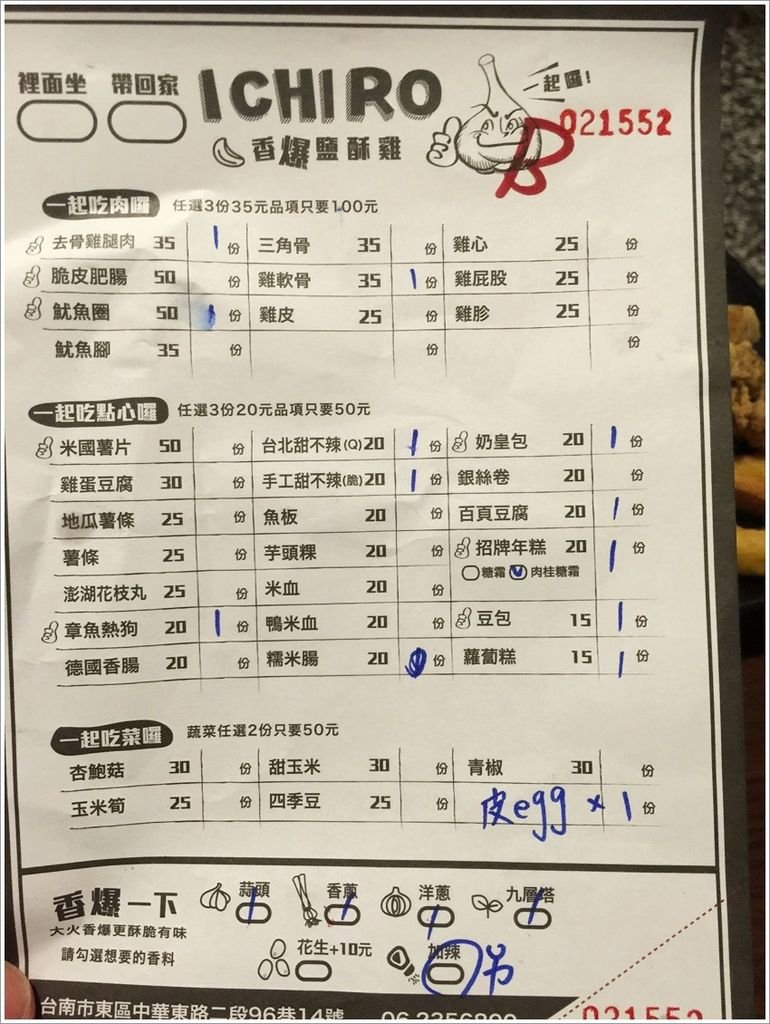 裡面坐 帶回家 ICHIRO 一起囉!
香爆鹽酥雞 B 021552
一起吃肉囉 任選3份35元品項只要100元
去骨雞腿肉 35 1 份 三角骨 35 份 雞心 25 份
脆皮肥腸 50 份 雞軟骨 35 1 份 雞屁股 25 份
魷魚圈 50 份 雞皮 25 份 雞胗 25 份
魷魚腳 35 份 份 份
一起吃點心囉 任選3份20元品項只要50元
米國薯片 50 份 台北甜不辣(Q) 20 1 份 奶皇包 20 1 份
雞蛋豆腐 30 份 手工甜不辣(脆) 20 1 份 銀絲卷 20 份
地瓜薯條 25 份 魚板 20 份 百頁豆腐 20 1 份
薯條 25 份 芋頭粿 20 份 招牌年糕 20 1 份
糖霜 肉桂糖霜
澎湖花枝丸 25 份 米血 20 份
章魚熱狗 20 1 份 鴨米血 20 份 豆包 15 1 份
德國香腸 20 份 糯米腸 20 份 蘿蔔糕 15 1 份
一起吃菜囉 蔬菜任選2份只要50元
杏鮑菇 30 份 甜玉米 30 份 青椒 30 份
玉米筍 25 份 四季豆 25 份 皮egg × 1 份
香爆一下 蒜頭 香蔥 洋蔥 九層塔
大火香爆更酥脆有味
請勾選想要的香料 花生+10元 加辣
台南市東區中華東路二段96巷14號 021552